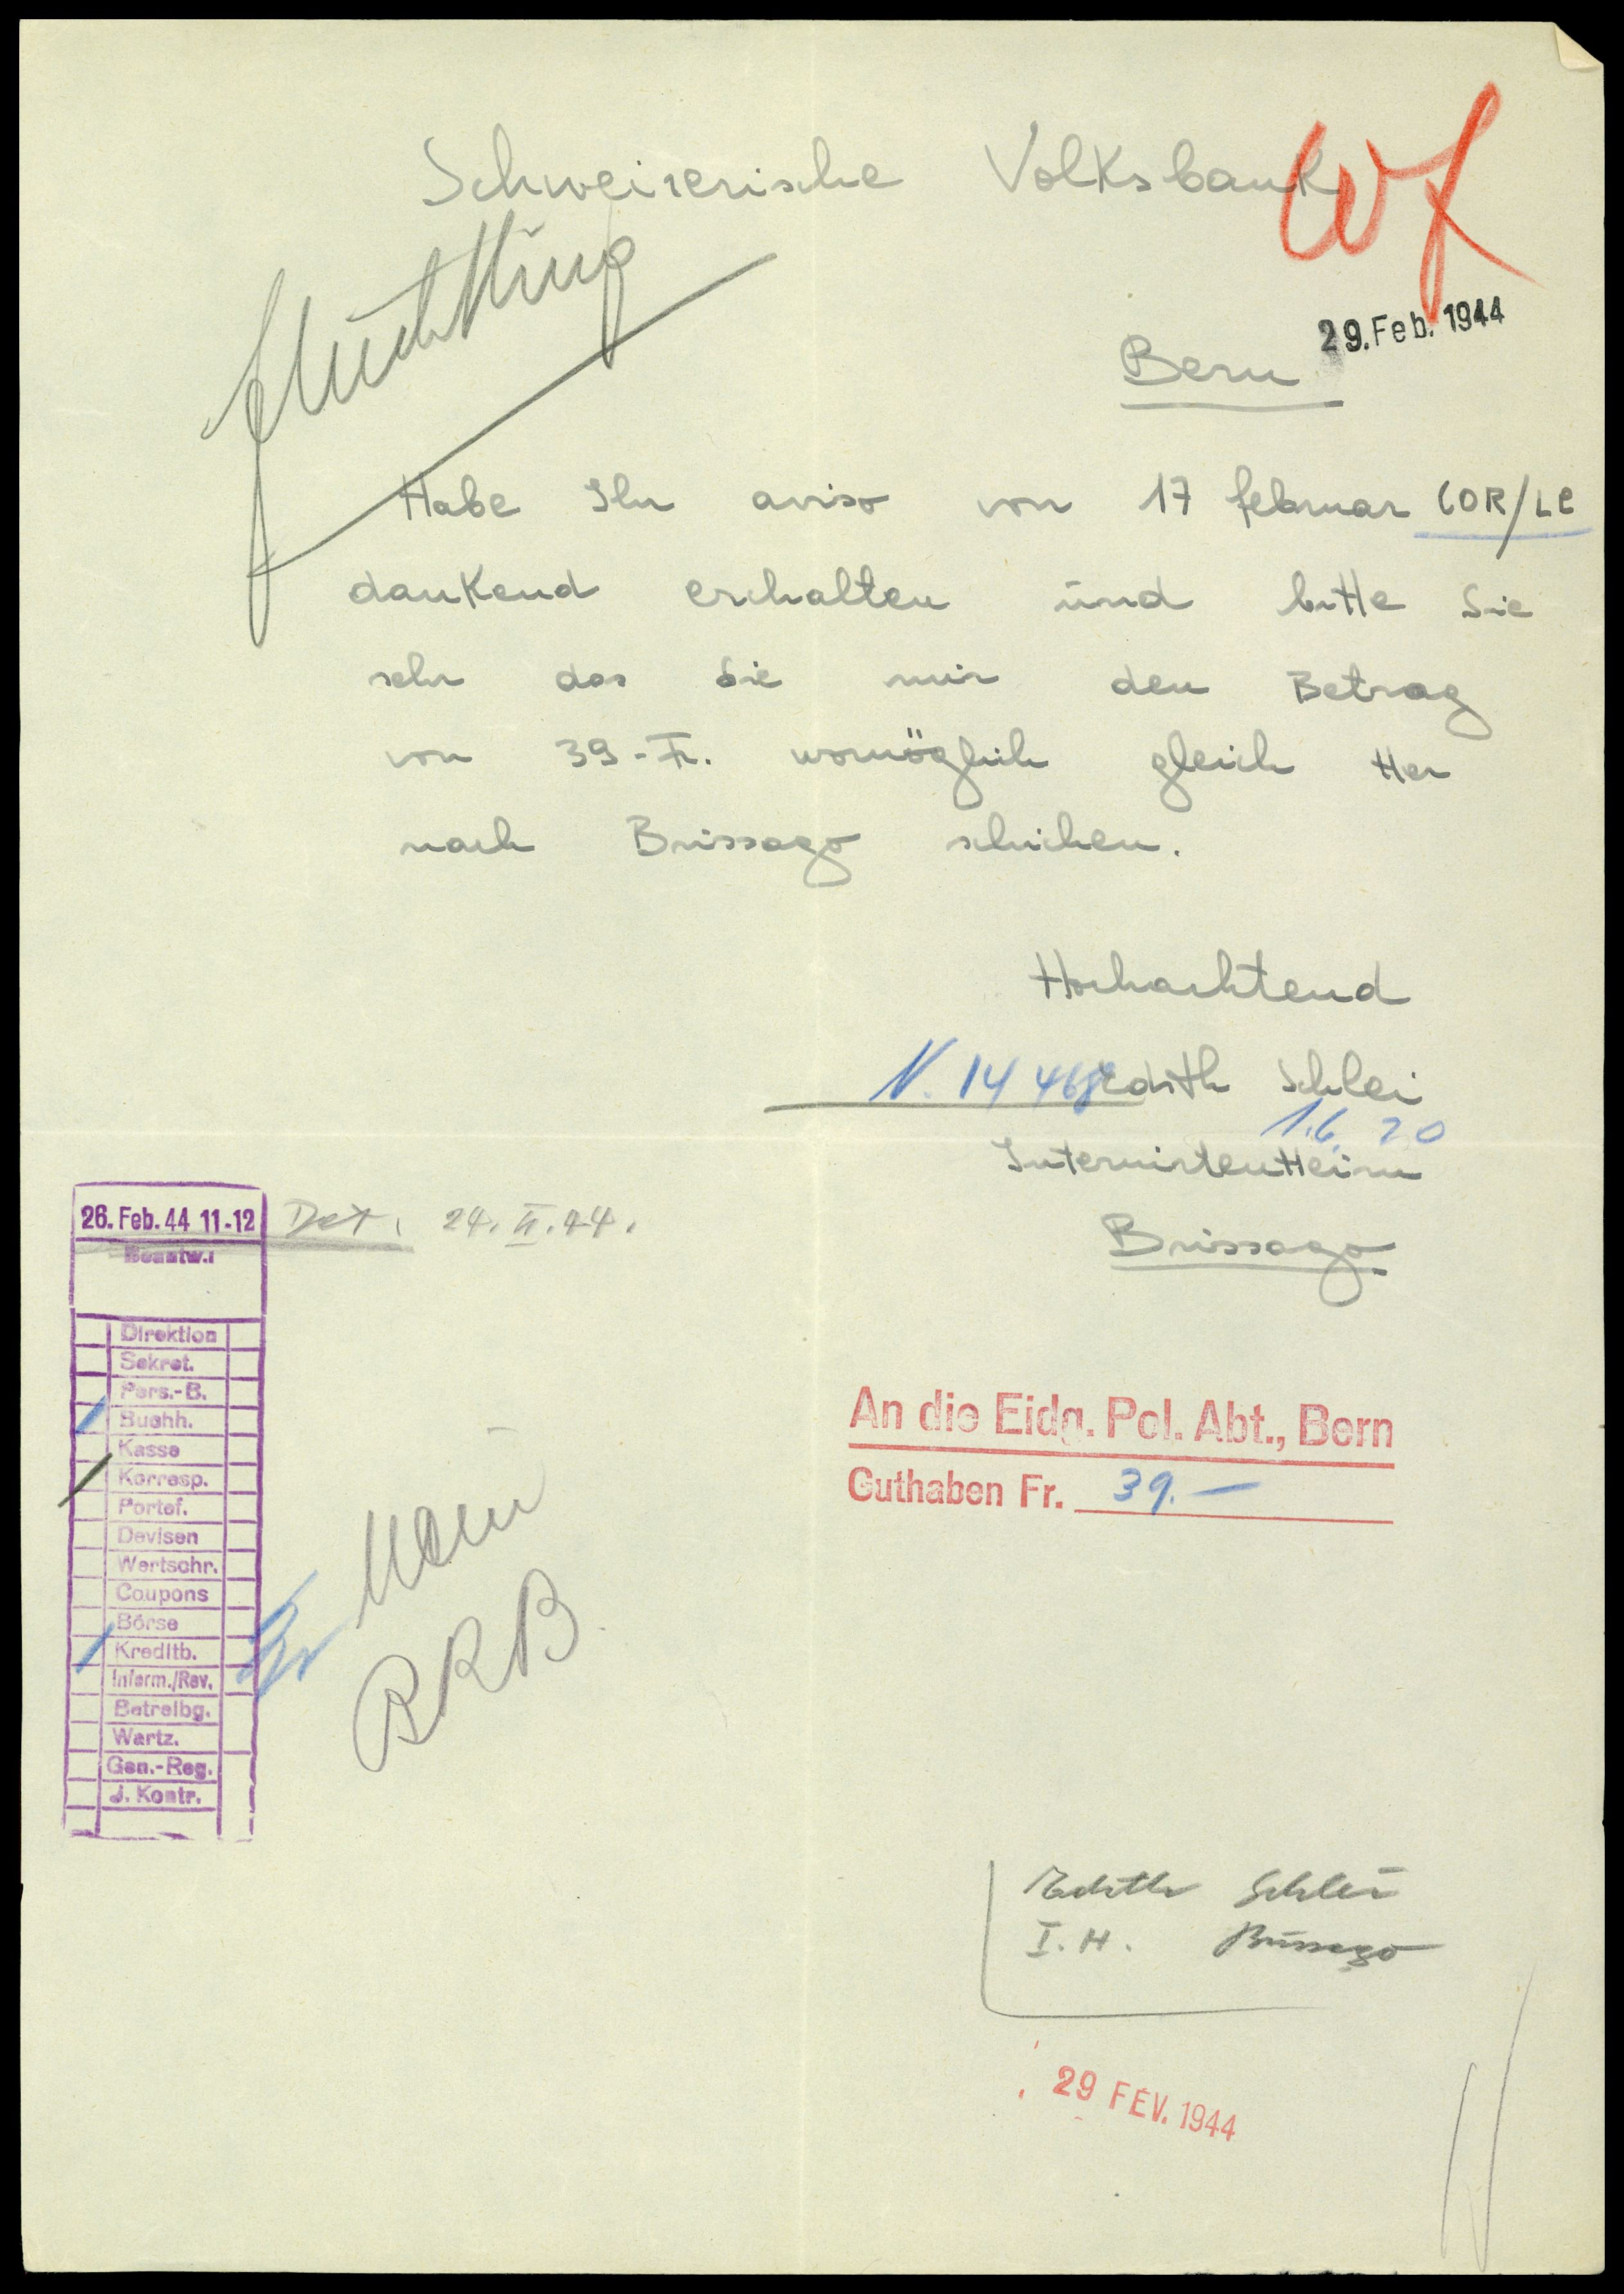 Schweizerische Volksbank
WL
Flüchtling
29. Feb. 1944
Bern
Habe Ihr aviso von 17 februar COR/LE
dankend erhalten und bitte Sie
sehr das Sie mir den Betrag
von 39.- Fr. womöglich gleich Her
nach Brissago schicken.
Hochachtend
N. 14 468 Edith Schlei
1.6. 20
InternirtenHeim
Brissago
26. Feb. 44 11-12
Dat. 24. II. 44.
Beantw.:
Direktion
Sekret.
Pers.-B.
Buchh.
Kasse
Korresp.
Portef.
Devisen
Wertschr.
Coupons
Börse
Kreditb.
Inform./Rev.
Betreibg.
Wartz.
Gen.-Reg.
J. Kontr.
An die Eidg. Pol. Abt., Bern
Guthaben Fr. 39.-
BRB
Edith Schlei
I. H. Brissago
29 FEV. 1944